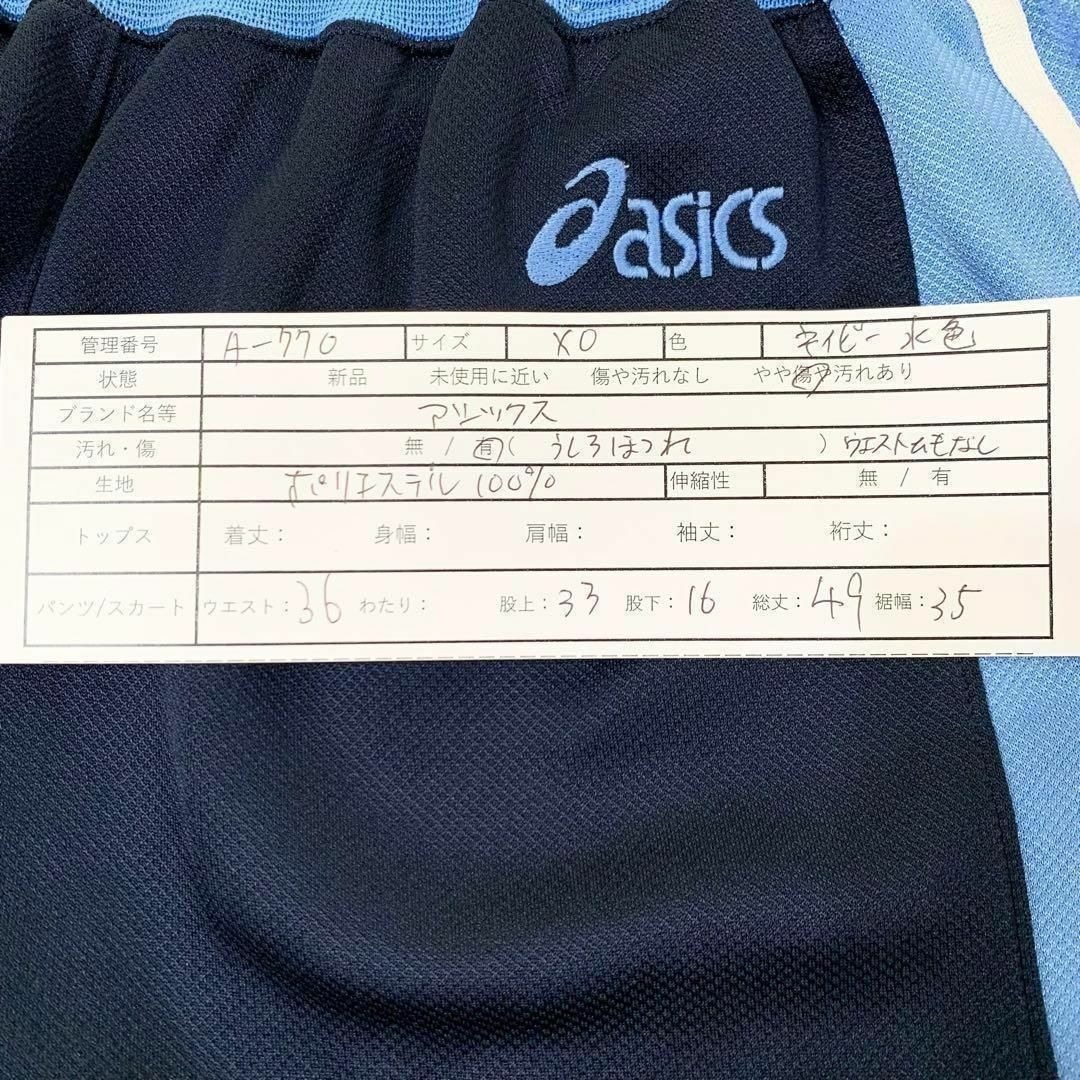 asics
管理番号 A-770 サイズ XO 色 ネイビー 水色
状態 新品 未使用に近い 傷や汚れなし やや傷や汚れあり
ブランド名等 アシックス
汚れ・傷 無 / 有 ( うしろほつれ ) ウエストひもなし
生地 ポリエステル 100% 伸縮性 無 / 有
トップス 着丈: 身幅: 肩幅: 袖丈: 裄丈:
パンツ/スカート ウエスト:36 わたり: 股上:33 股下:16 総丈:49 裾幅:35